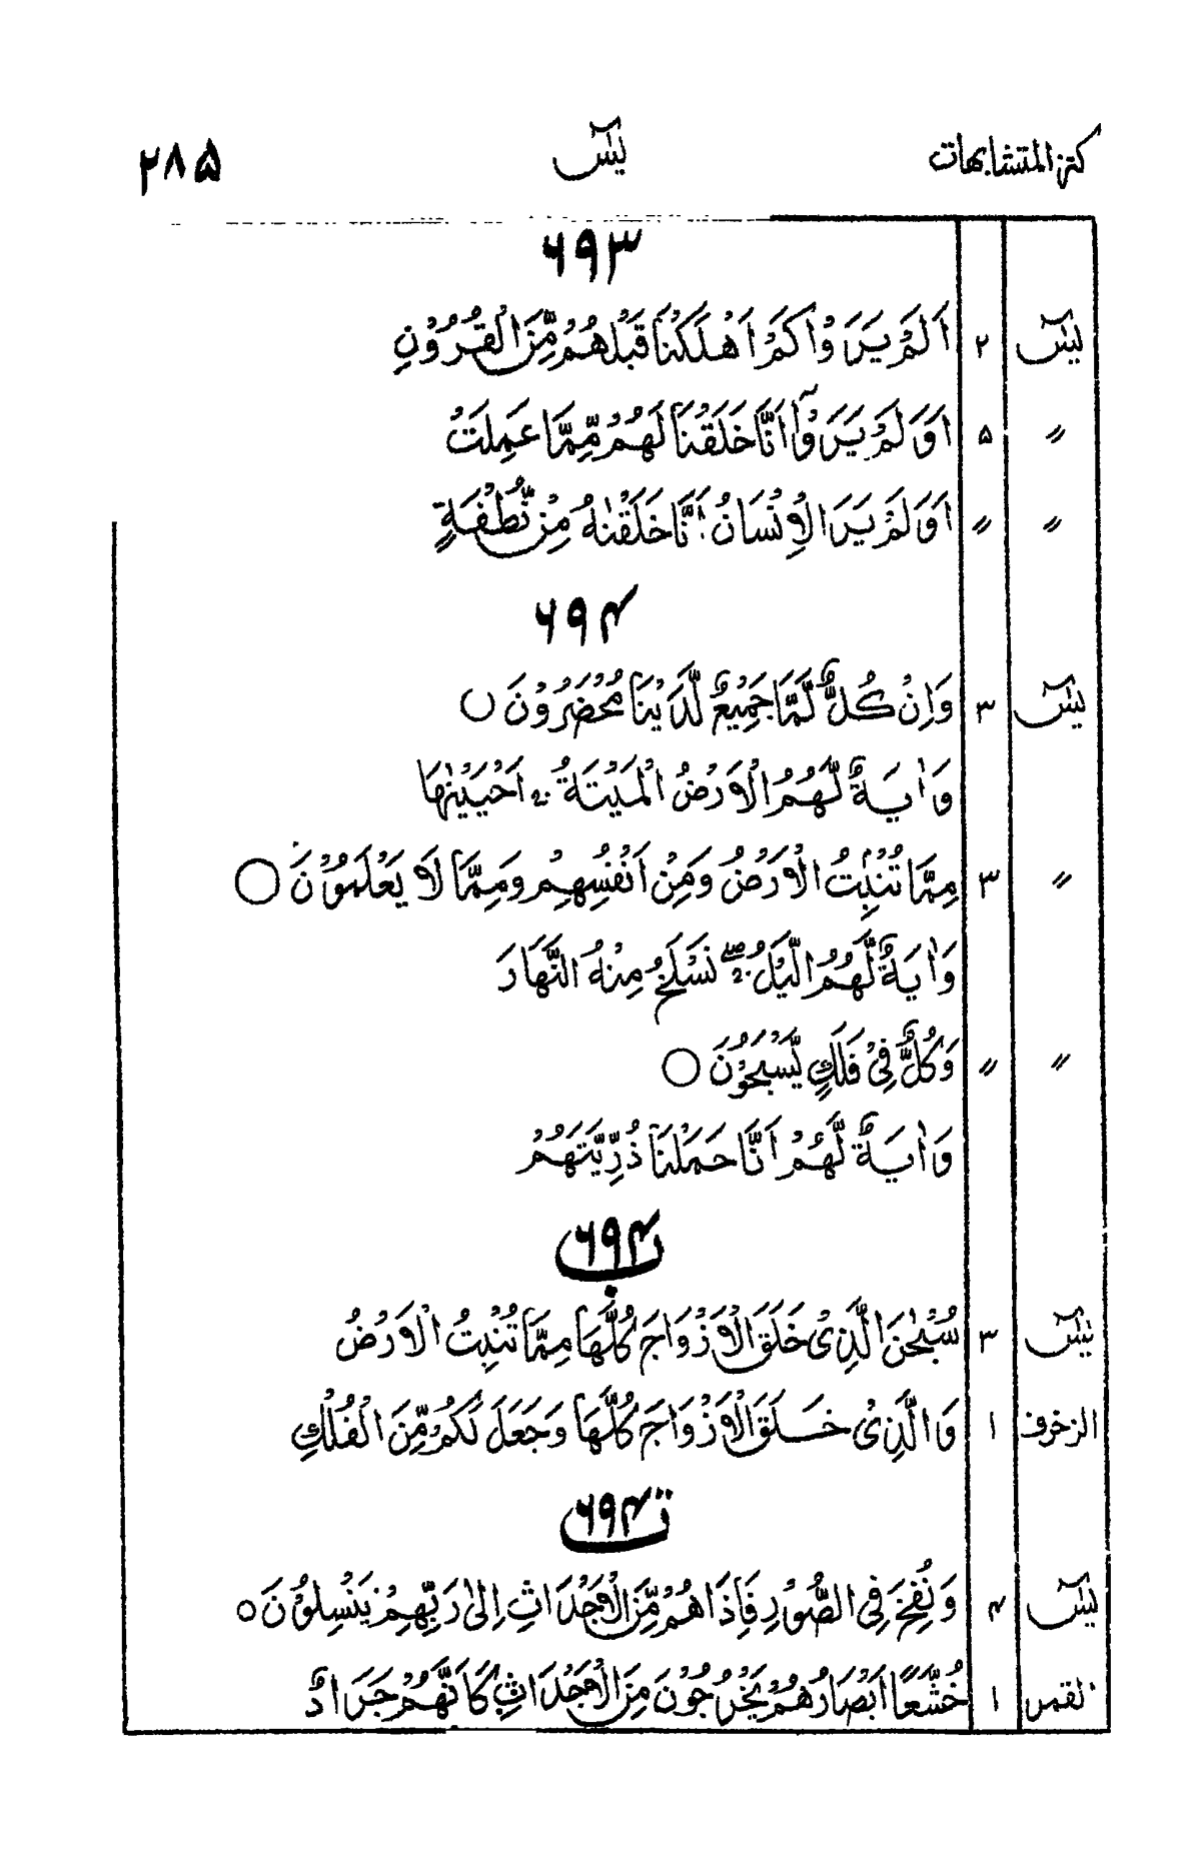 كنز المتشابهات يٰسٓ ۲۸۵
۶۹۳
يٰسٓ ۲ اَلَمْ يَرَوْا كَمْ اَهْلَكْنَا قَبْلَهُمْ مِّنَ الْقُرُوْنِ
〃 ۵ اَوَلَمْ يَرَوْا اَنَّا خَلَقْنَا لَهُمْ مِّمَّا عَمِلَتْ
〃 〃 اَوَلَمْ يَرَ الْاِنْسَانُ اَنَّا خَلَقْنٰهُ مِنْ نُّطْفَةٍ
۶۹۴
يٰسٓ ۳ وَاِنْ كُلٌّ لَّمَّا جَمِيْعٌ لَّدَيْنَا مُحْضَرُوْنَ ○
وَاٰيَةٌ لَّهُمُ الْاَرْضُ الْمَيْتَةُ ۚ اَحْيَيْنٰهَا
〃 ۳ مِمَّا تُنْۢبِتُ الْاَرْضُ وَمِنْ اَنْفُسِهِمْ وَمِمَّا لَا يَعْلَمُوْنَ ○
وَاٰيَةٌ لَّهُمُ الَّيْلُ ۖ نَسْلَخُ مِنْهُ النَّهَارَ
〃 〃 وَكُلٌّ فِيْ فَلَكٍ يَّسْبَحُوْنَ ○
وَاٰيَةٌ لَّهُمْ اَنَّا حَمَلْنَا ذُرِّيَّتَهُمْ
۶۹۴ ب
يٰسٓ ۳ سُبْحٰنَ الَّذِيْ خَلَقَ الْاَزْوَاجَ كُلَّهَا مِمَّا تُنْبِتُ الْاَرْضُ
الزخرف ۱ وَالَّذِيْ خَلَقَ الْاَزْوَاجَ كُلَّهَا وَجَعَلَ لَكُمْ مِّنَ الْفُلْكِ
۶۹۴ ت
يٰسٓ ۴ وَنُفِخَ فِي الصُّوْرِ فَاِذَا هُمْ مِّنَ الْاَجْدَاثِ اِلٰى رَبِّهِمْ يَنْسِلُوْنَ ○
القمر ۱ خُشَّعًا اَبْصَارُهُمْ يَخْرُجُوْنَ مِنَ الْاَجْدَاثِ كَاَنَّهُمْ جَرَادٌ